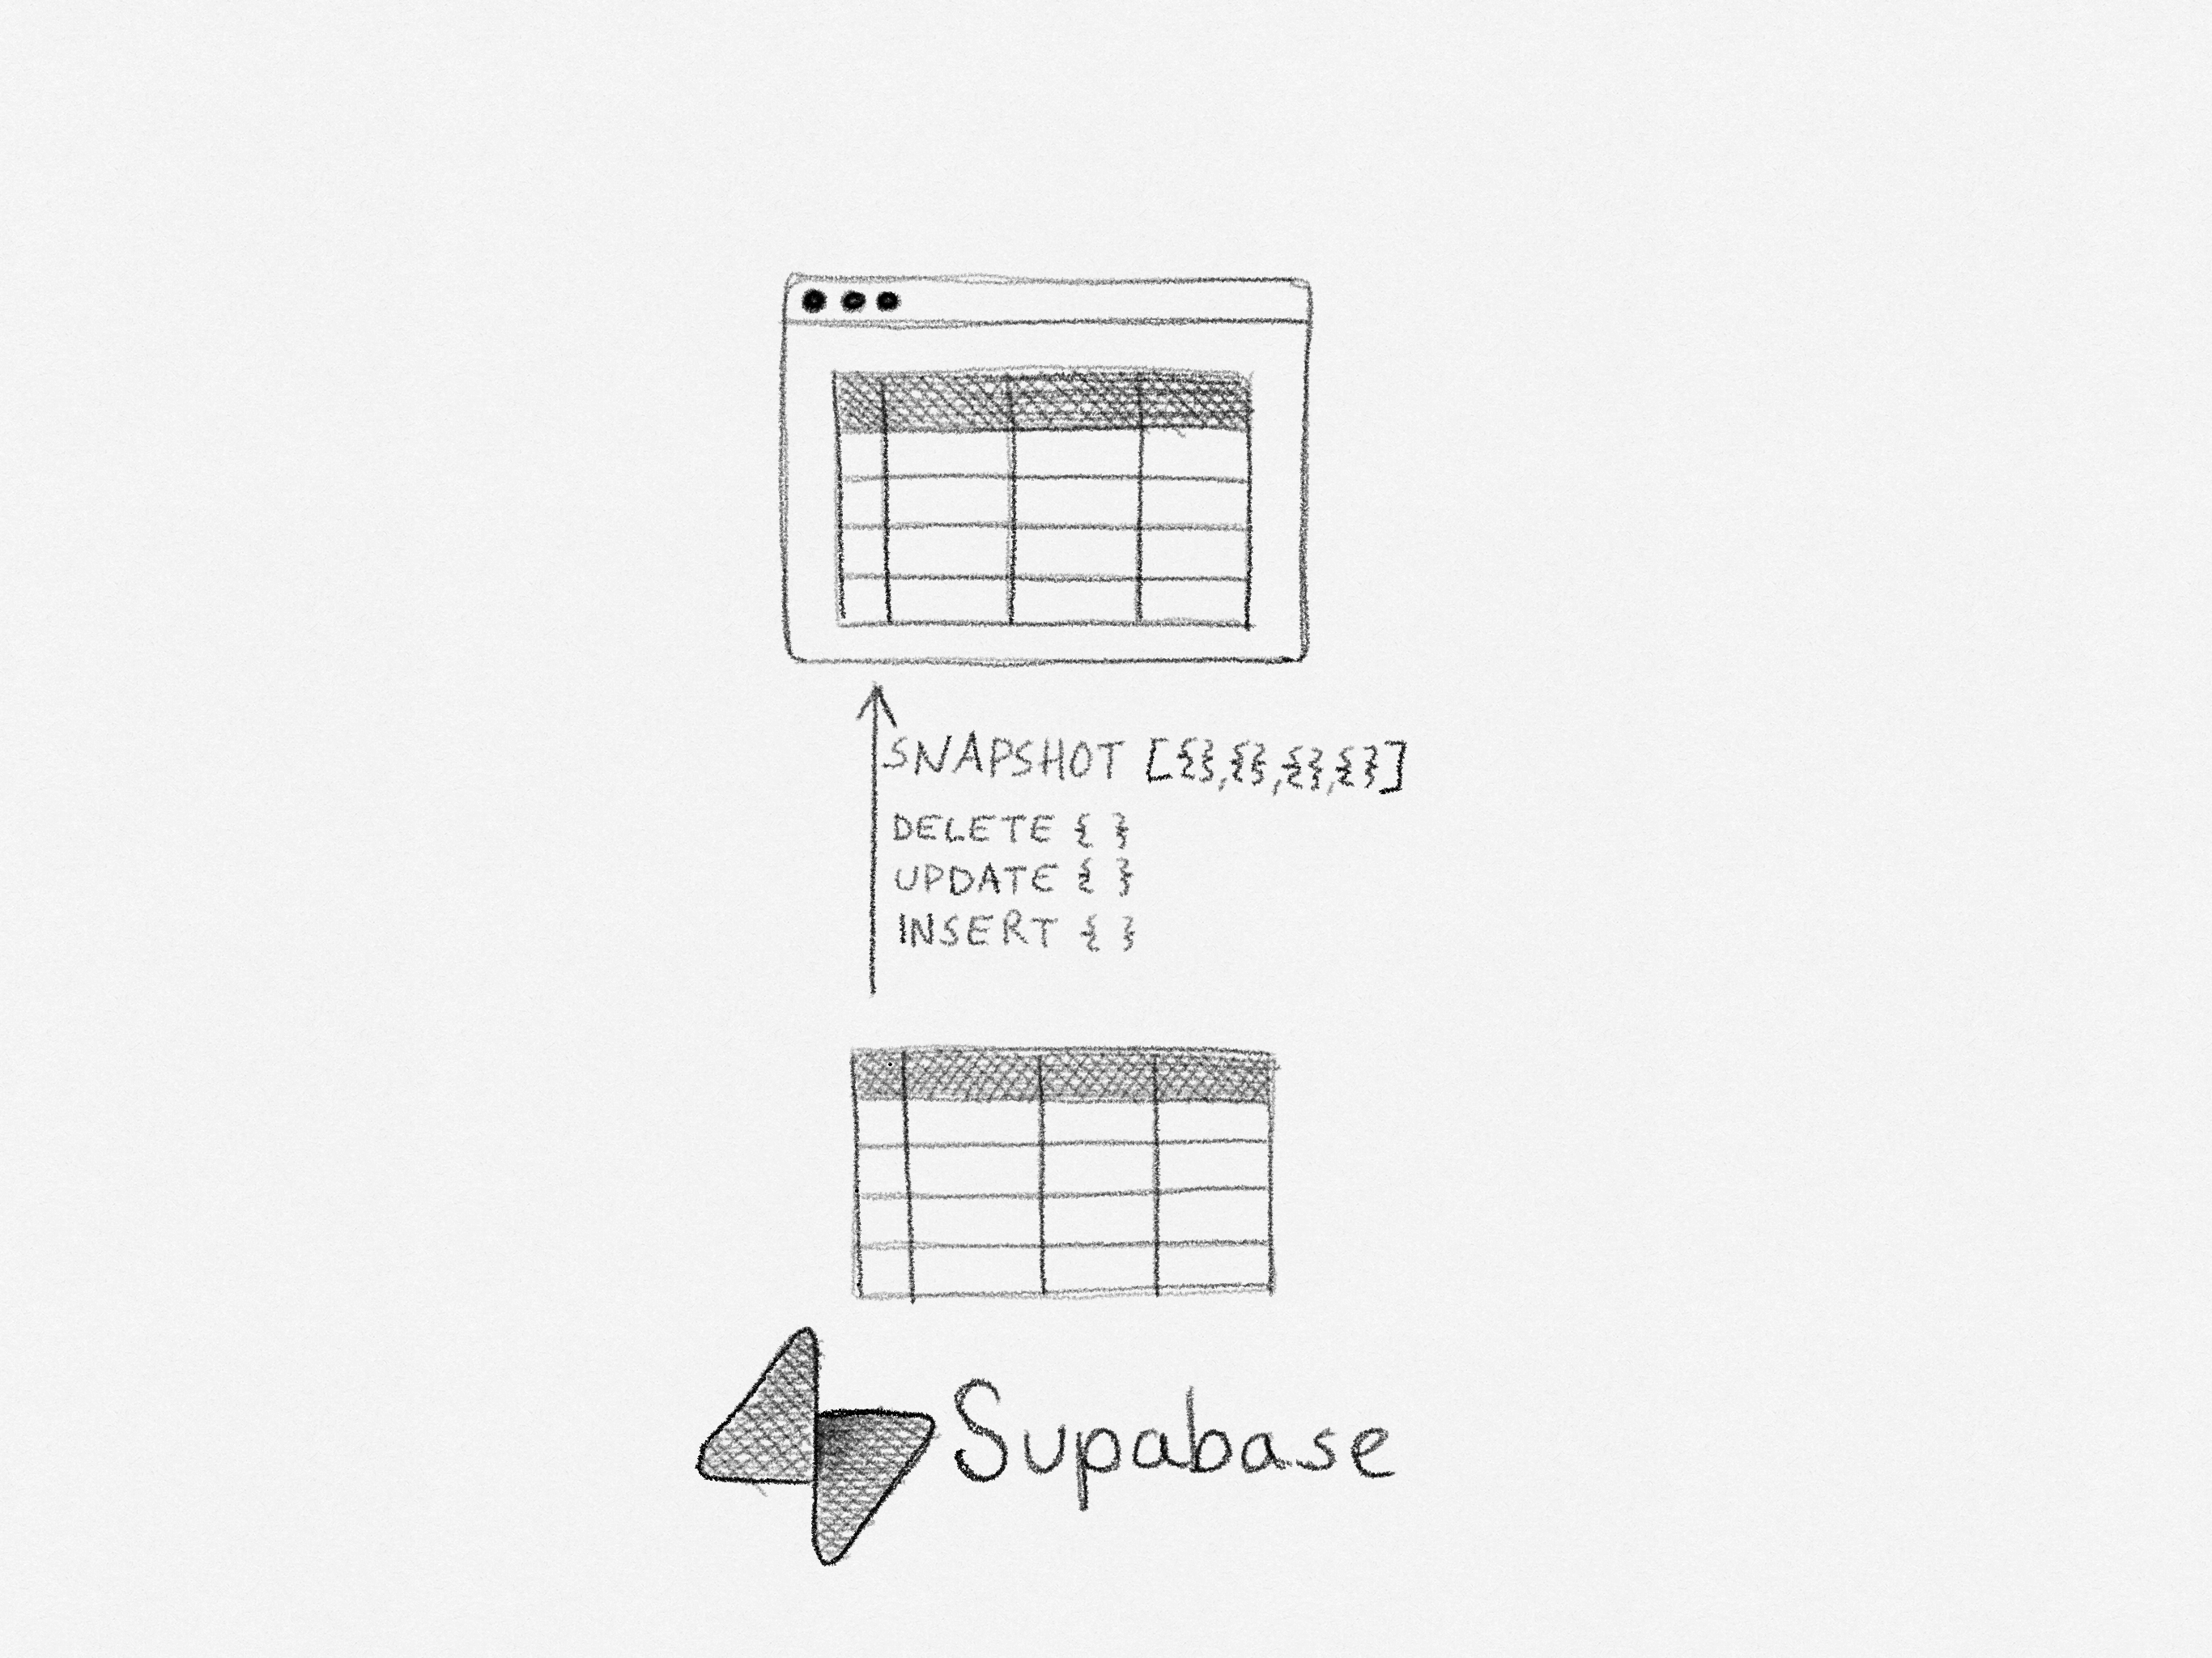 SNAPSHOT [{},{},{},{}]
DELETE { }
UPDATE { }
INSERT { }
Supabase